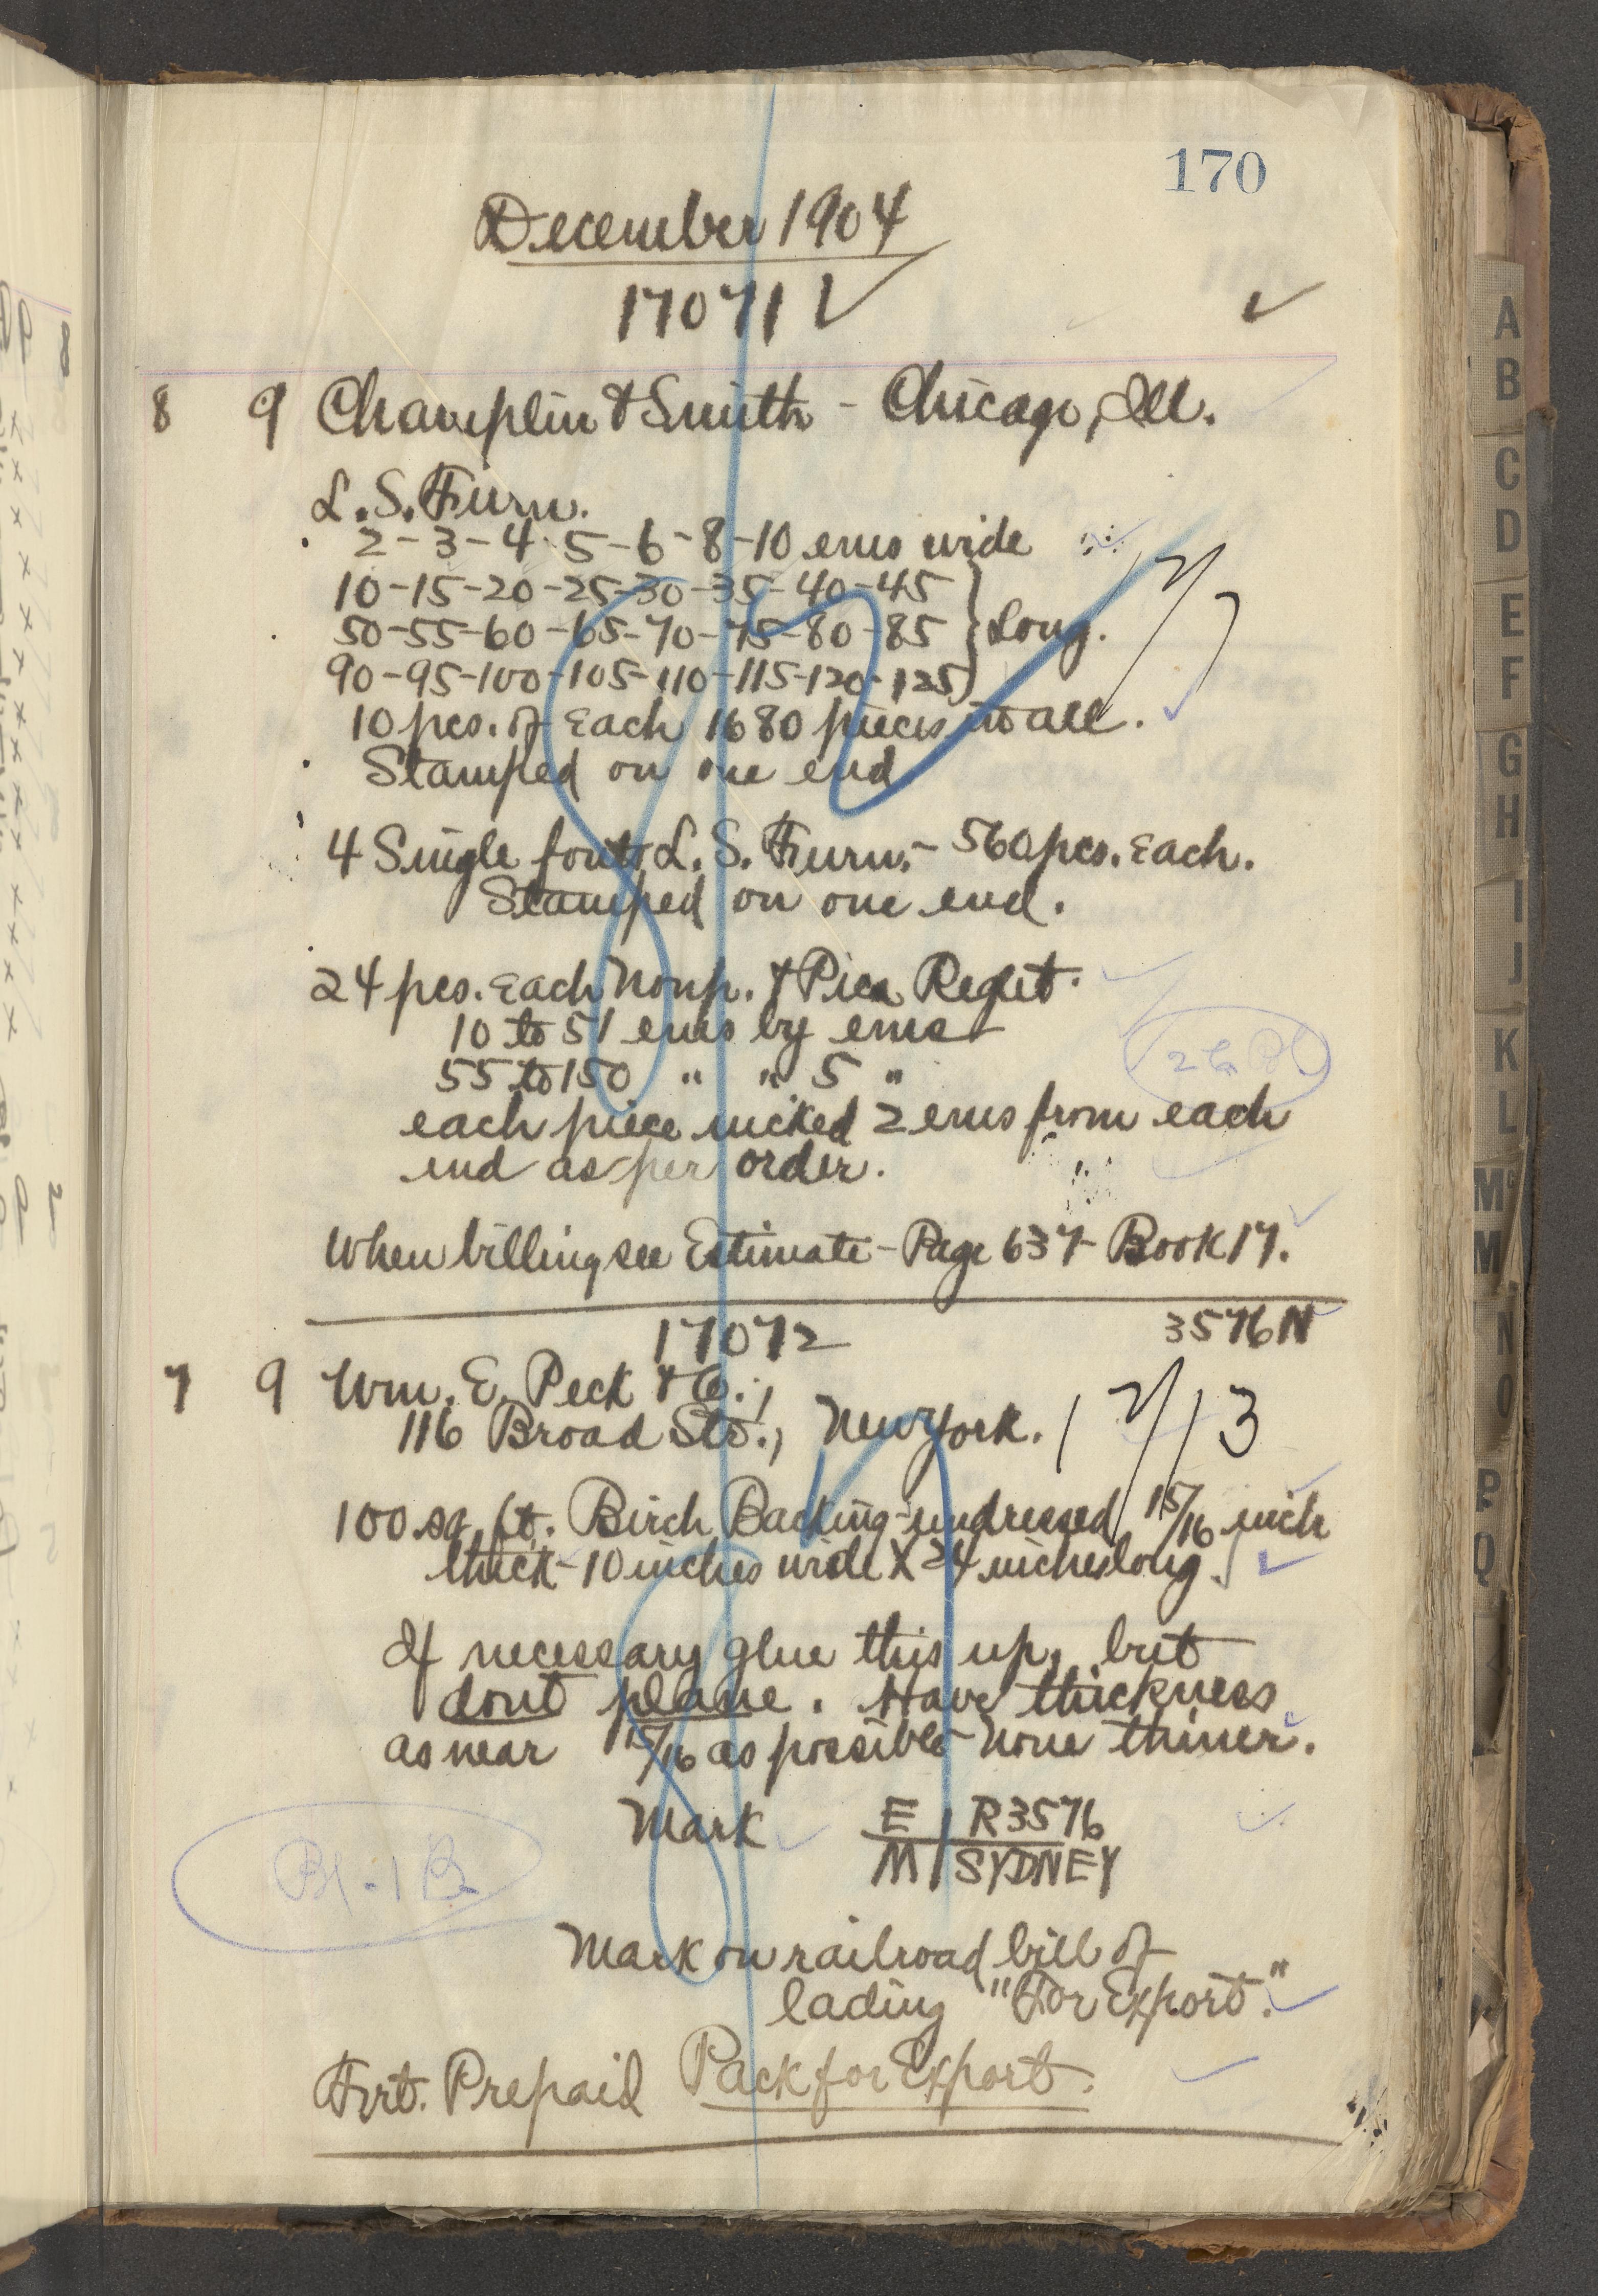 170
December 1904
17071 ✓
8 9 Champlin & Smith - Chicago, Ill.
L. S. Furn.
2-3-4-5-6-8-10 ems wide
10-15-20-25-30-35-40-45
50-55-60-65-70-75-80-85 } Long.
90-95-100-105-110-115-120-125
12/7
10 pcs. of Each 1680 pieces in all.
Stamped on one end
4 Single fonts L. S. Furn. - 560 pcs. Each.
Stamped on one end.
24 pcs. Each Nonp. & Pica Reglet.
10 to 51 ems by ems
55 to 150 " " 5 "
each piece nicked 2 ems from each
end as per order.
When billing see Estimate - Page 637 - Book 17.
17072 3576N
7 9 Wm. E. Peck & Co.,
116 Broad St., New York. 12/13
100 sq. ft. Birch Backing - undressed, 15/16 inch
thick - 10 inches wide X 24 inches long.
If necessary glue this up, but
dont plane. Have thickness
as near 15/16 as possible - none thiner.
Mark E R3576
M SYDNEY
Bx. 1 B
Mark on railroad bill of
lading "For Export."
Frt. Prepaid Pack for Export.
A
B
C
D
E
F
G
H
I
J
K
L
Mc
M
N
O
P
Q